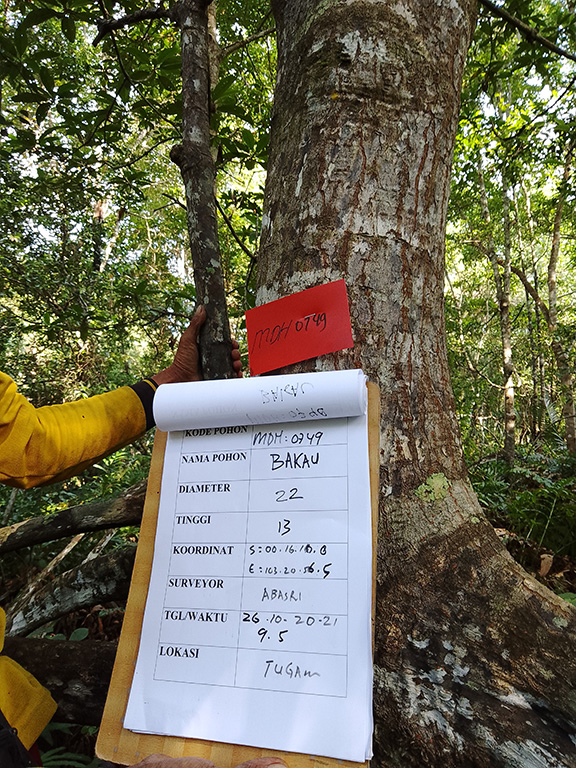 MDH 0749
KODE POHON MDH: 0749
NAMA POHON BAKAU
DIAMETER 22
TINGGI 13
KOORDINAT S: 00.16.18.8
E: 103.20.56.5
SURVEYOR ABASRI
TGL/WAKTU 26.10-20-21
9.5
LOKASI